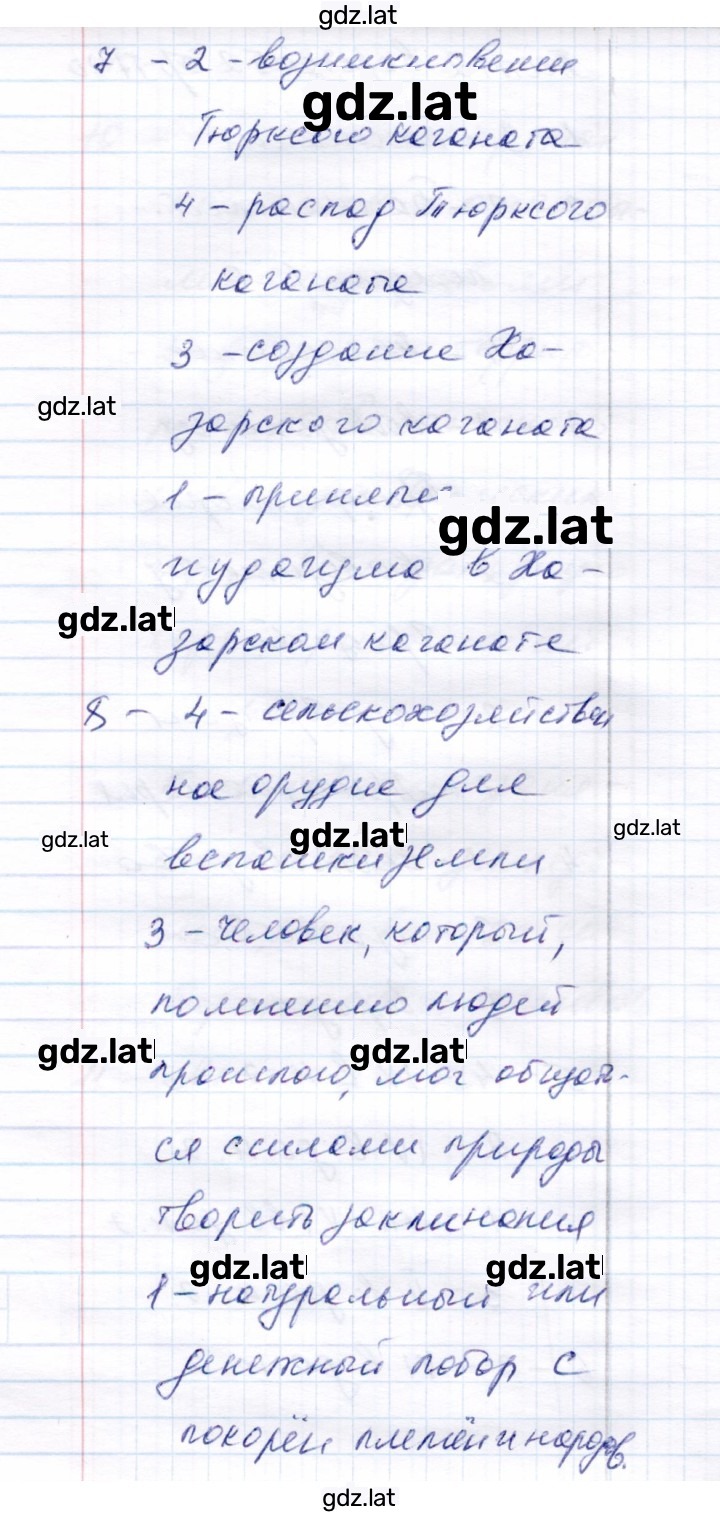 gdz.lat
7 - 2 - возникновение
gdz.lat
Тюрксого каганата
4 - распад Тюрксого
каганата
3 - создание Ха-
gdz.lat
зарского каганата
1 - принятие
gdz.lat
иудаизма в Ха-
gdz.lat
зарском каганате
8 - 4 - сельскохозяйствен
ное орудие для
gdz.lat gdz.lat gdz.lat
вспашки земли
3 - человек, который,
по мнению людей
gdz.lat gdz.lat
прошлого, мог общать-
ся с силами природы
творить заклинания
gdz.lat gdz.lat
1 - натуральный или
денежный побор с
покорён племён и народов.
gdz.lat